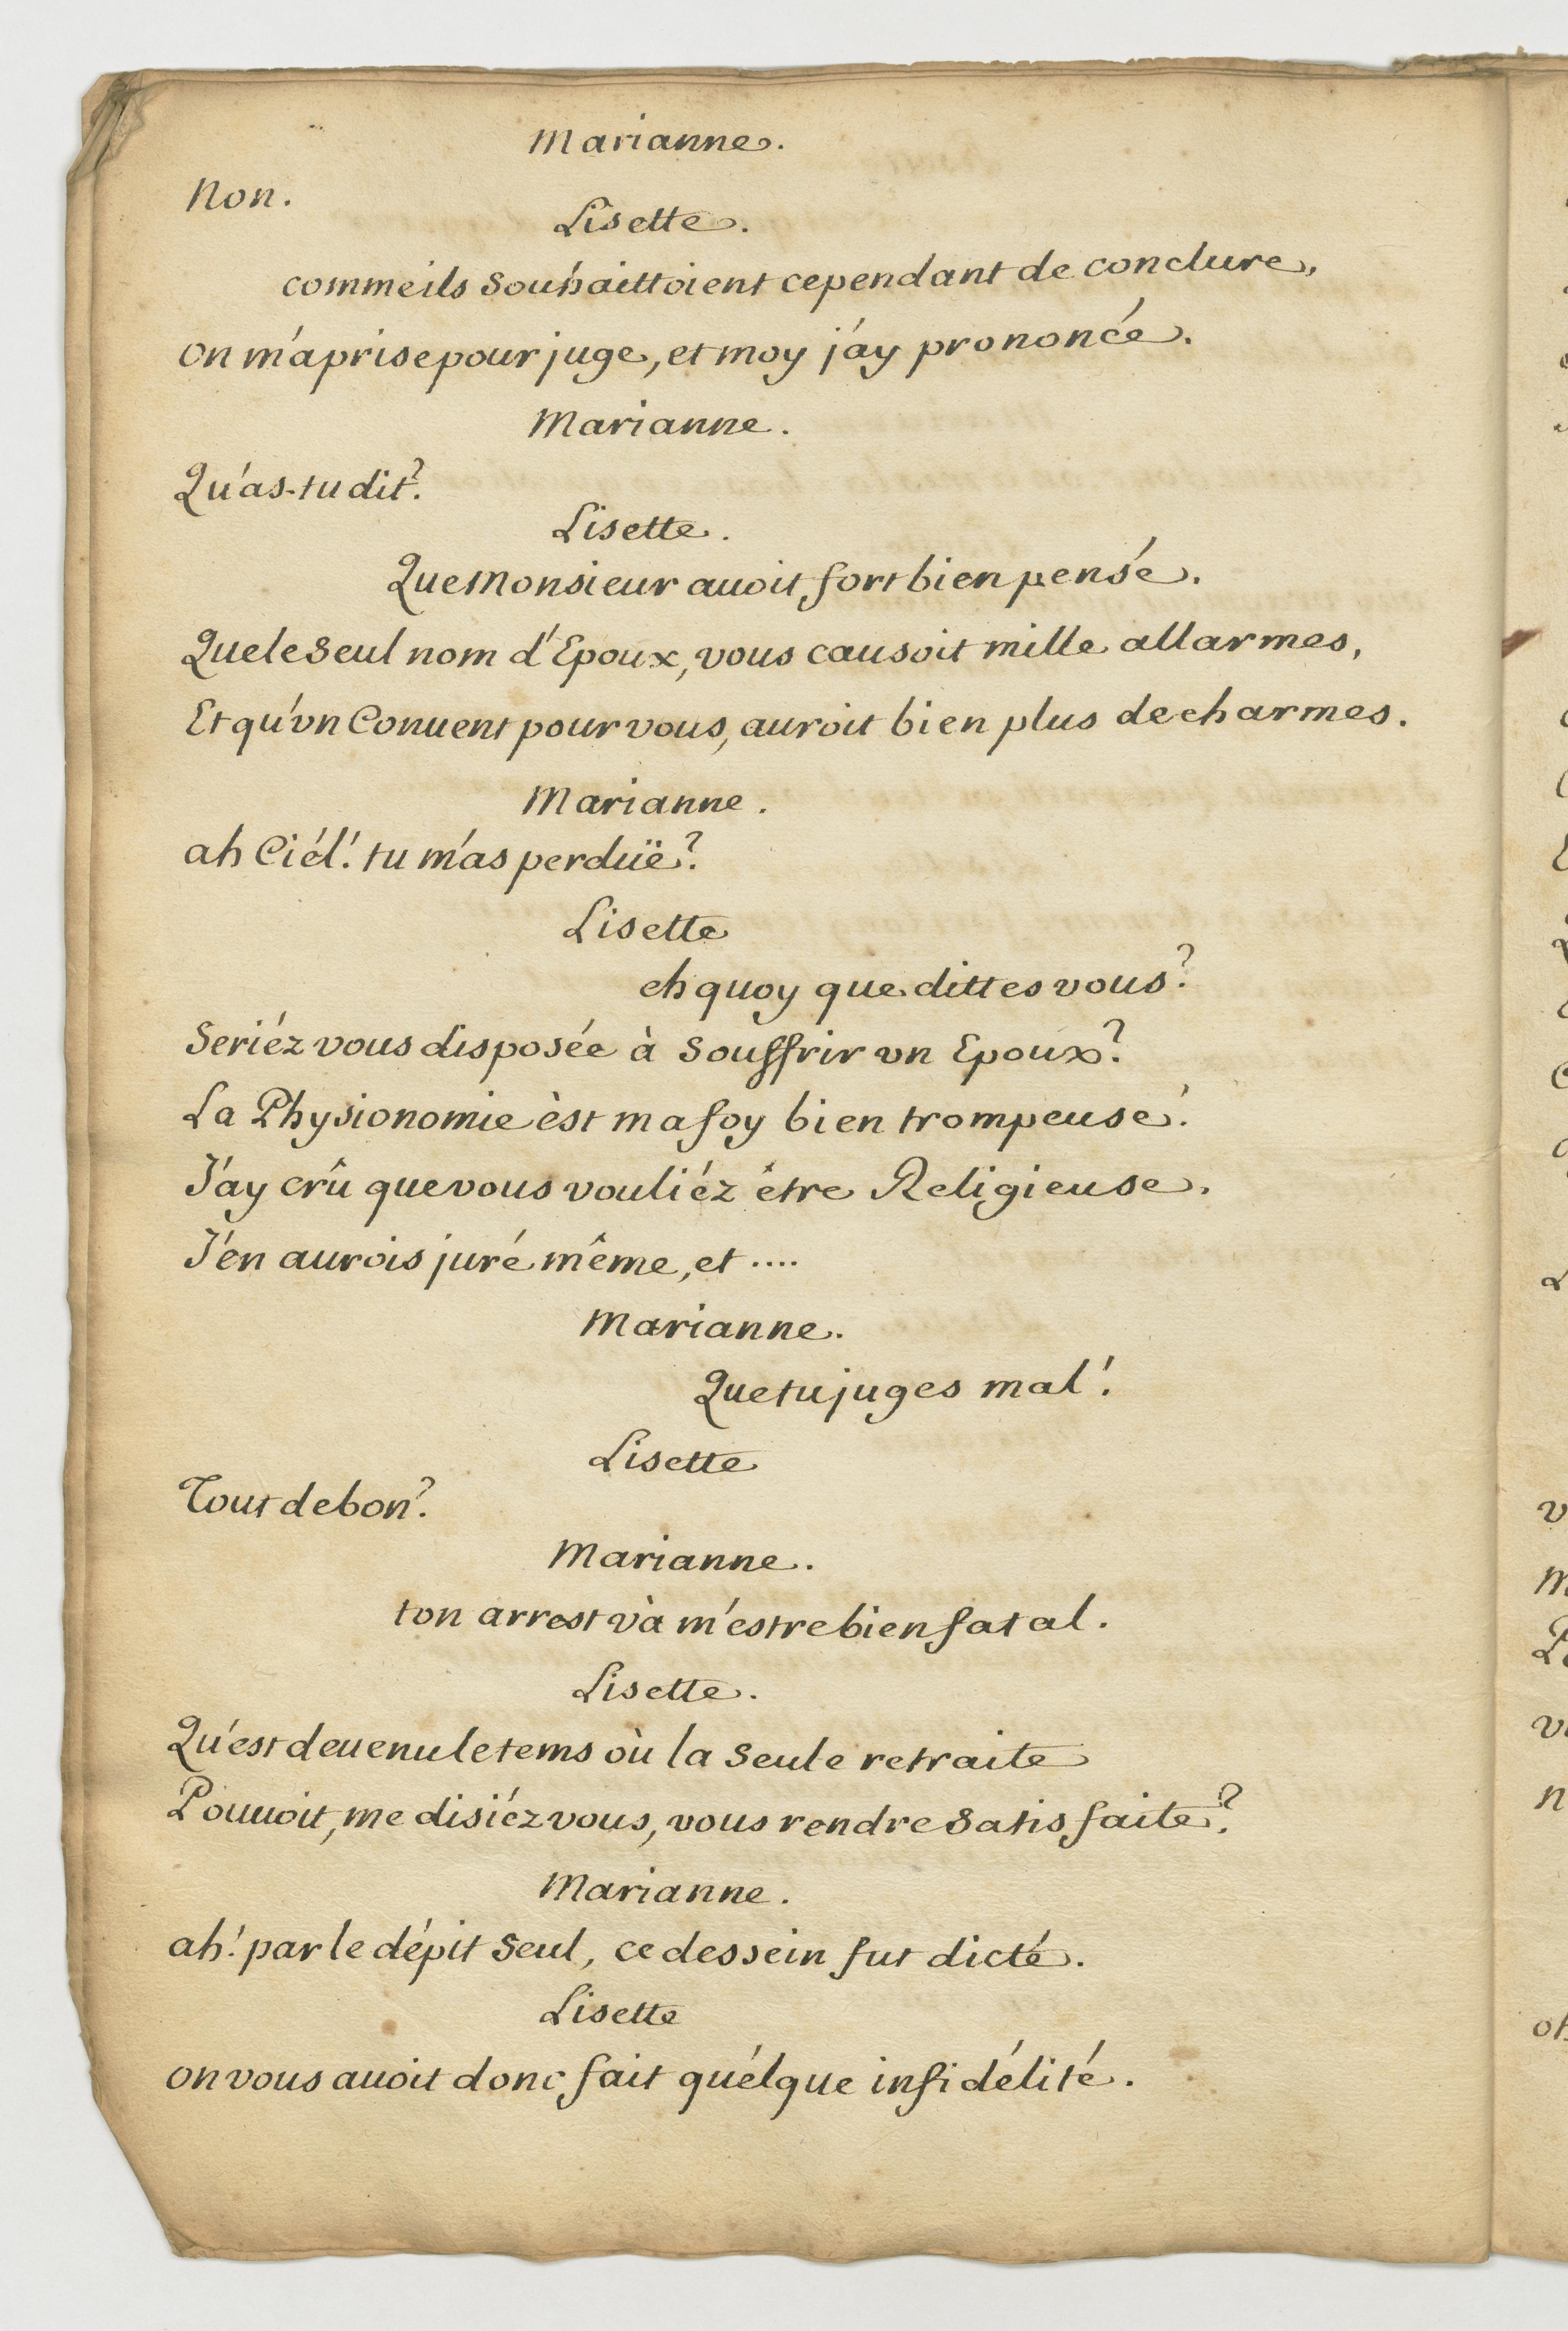 Marianne.
Non.
Lisette.
comme ils souhaittoient cependant de conclure,
on m'a prise pour juge, et moy j'ay prononcé.
Marianne.
Qu'as-tu dit?
Lisette.
Que Monsieur auoit fort bien pensé.
Que le seul nom d'Epoux, vous causoit mille allarmes,
Et qu'vn Conuent pour vous, auroit bien plus de charmes.
Marianne.
ah Ciél! tu m'as perduë?
Lisette
eh quoy que dittes vous?
Seriéz vous disposée à souffrir vn Epoux?
La Physionomie èst ma foy bien trompeuse!
J'ay crû que vous vouliéz être Religieuse,
J'en aurois juré même, et ....
Marianne.
Que tu juges mal!
Lisette
Tout de bon?
Marianne.
ton arrest và m'estre bien fatal.
Lisette.
Qu'est deuenu le tems où la seule retraite
Pouuoit, me disiéz vous, vous rendre satisfaite?
Marianne.
ah! par le dépit seul, ce dessein fut dicté.
Lisette
on vous auoit donc fait quélque infidélité.